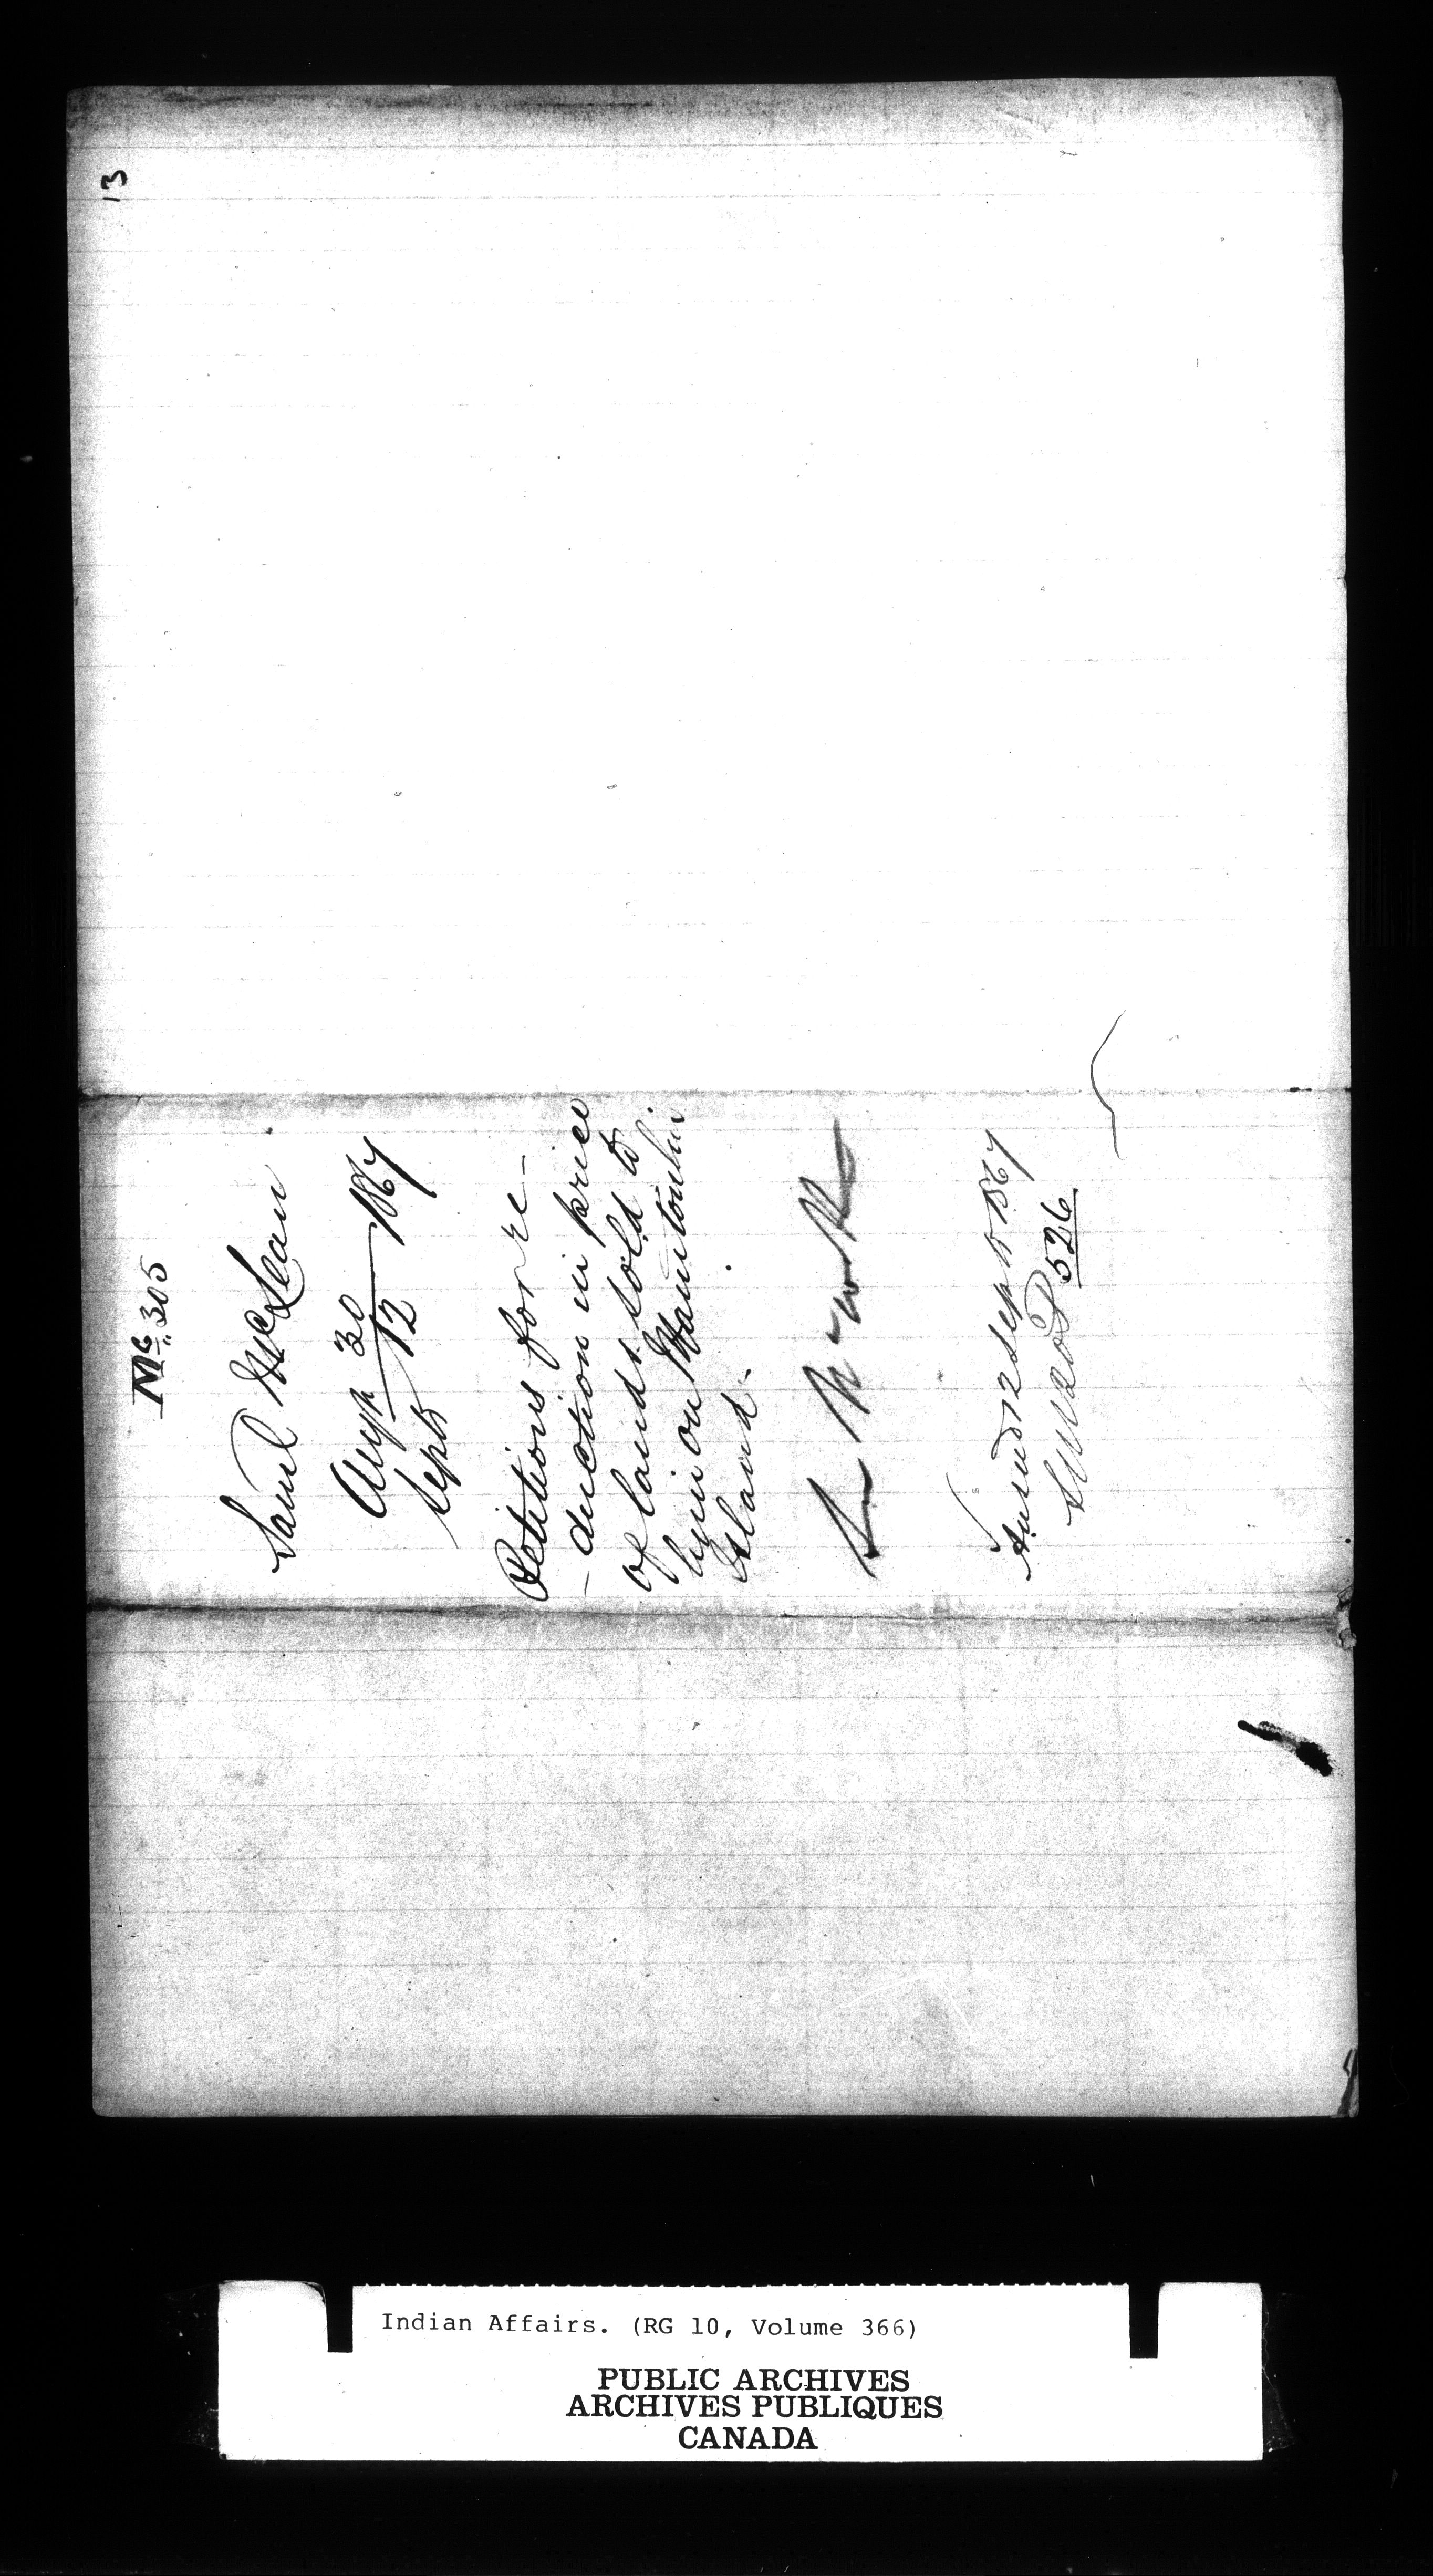 13
Mc. 305
Saml McLean
Augt 30
Sept 12 1867
Petitions for re-
-duction in price
of lands sold to
him on Manitoulin
Island.
Ansd 12 Sept 1867
526
Indian Affairs. (RG 10, Volume 366)
PUBLIC ARCHIVES
ARCHIVES PUBLIQUES
CANADA